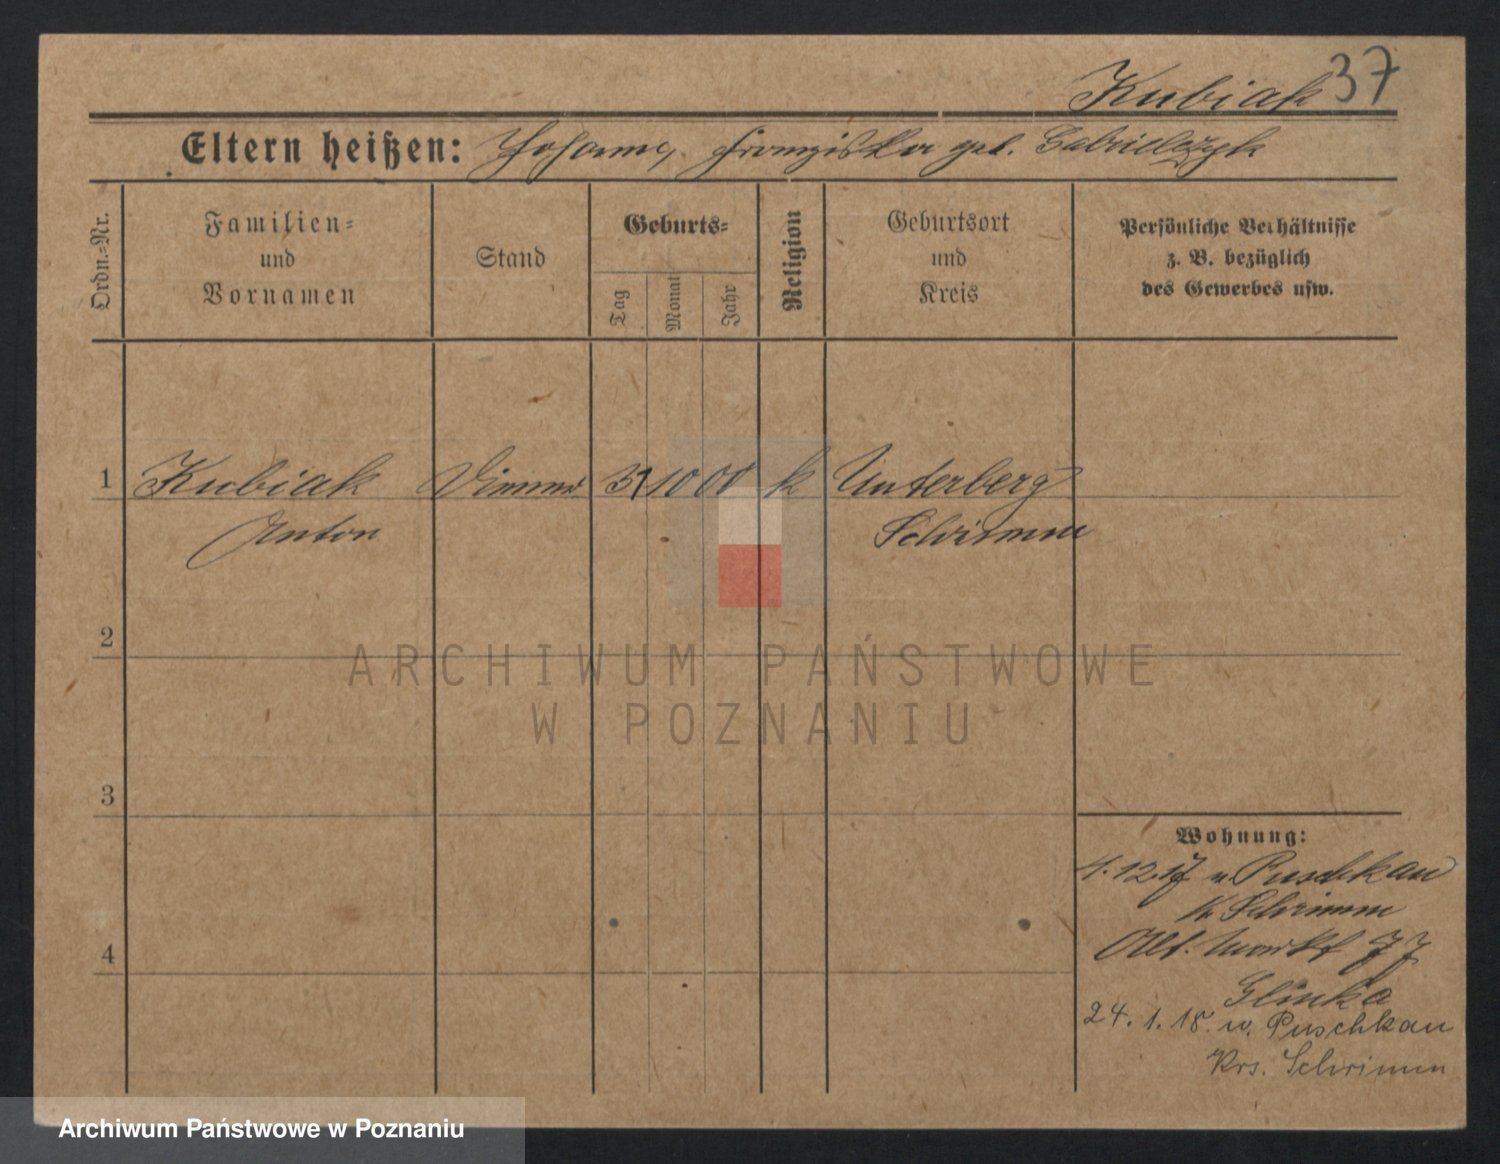 Kubiak 37
Eltern heißen: Johann, Franziska geb.
Ordn.-Nr.
Familien- und Vornamen
Stand
Geburts-
Tag
Monat
Jahr
Religion
Geburtsort und Kreis
Persönliche Verhältnisse
z. B. bezüglich
des Gewerbes usw.
1 Kubiak 31 10 00 k Unterberg
Anton Schrimm
2
ARCHIWUM PAŃSTWOWE
W POZNANIU
3
Wohnung:
4.12.17 n. Puschkau
Kr. Schrimm
Alt. Markt 77
Glinka
4
24. 1. 18. w. Puschkau
Krs. Schrimm
Archiwum Państwowe w Poznaniu